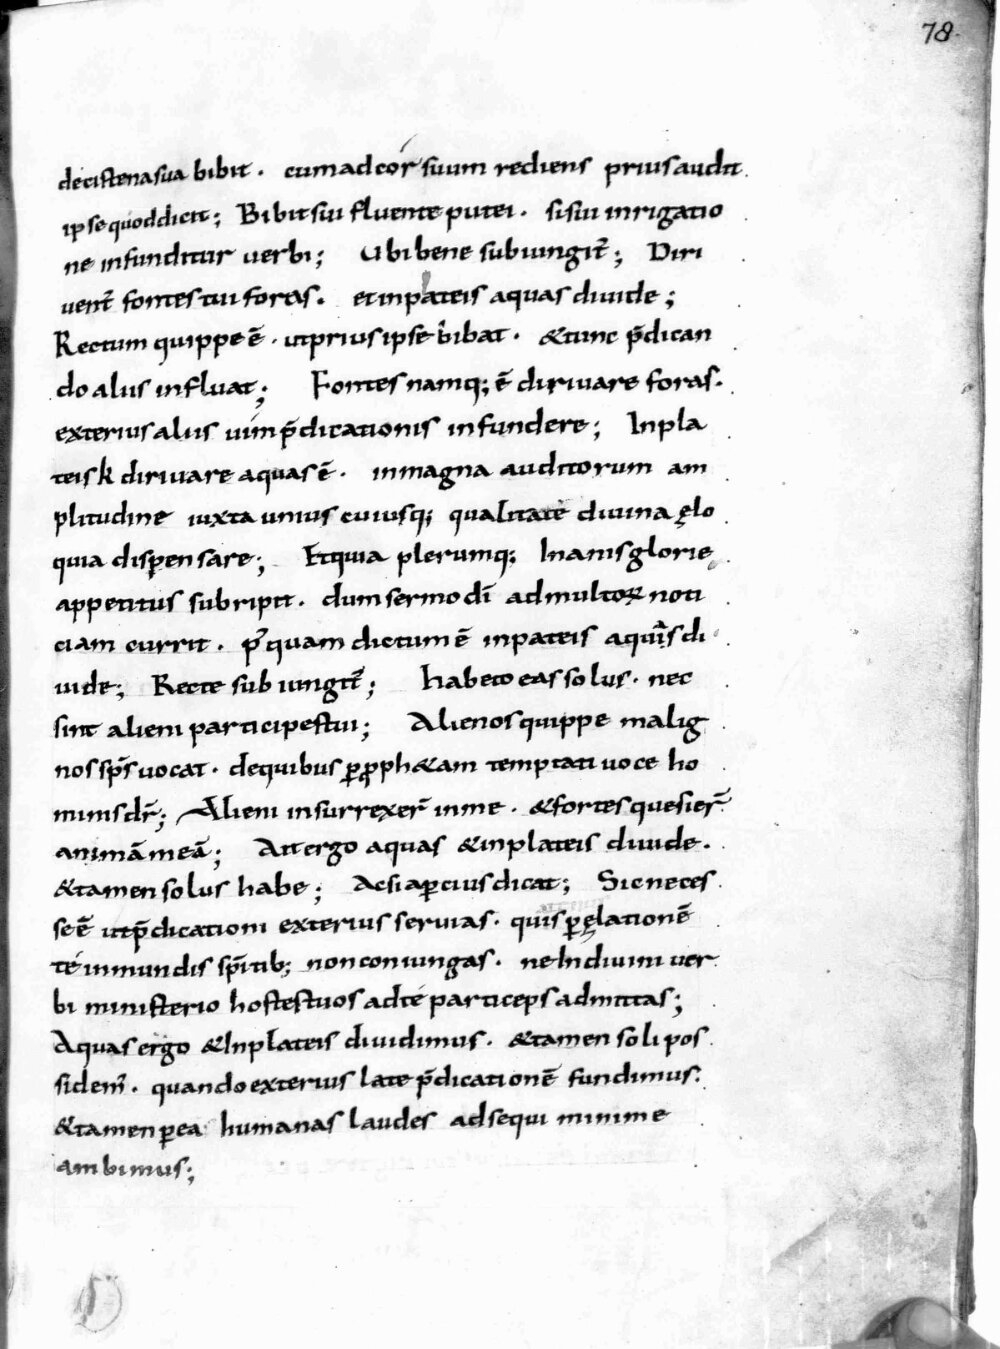 78.
decistena sua bibit. cum ad cor suum rediens prius audit
ipse quod dicit; Bibit sui fluente putei. si sui inrigatio
ne infunditur verbi; Ubi bene subiungit̄; Diri
vent̄ fontes tui foras. et in plateis aquas divide;
Rectum quippe ē. ut prius ipse bibat. & tunc p̄dican
do aliis influat; Fontes namq; ē dirivare foras.
exterius aliis vim p̄dicationis infundere; In pla
teis k dirivare aquas ē. in magna auditorum am
plitudine iuxta unius cuiusq; qualitatē divina ęlo
quia dispensare; Et quia plerumq; Inanis glorie
appetitus subripit. dum sermo dī ad multoꝝ noti
ciam currit. p̄ quam dictum ē in pateis aquas di
vide; Recte subiungit̄; habeto eas solus. nec
sint alieni participes tui; Alienos quippe malig
nos sp̄s vocat. de quibus ꝑ ꝓph&am temptati voce ho
minis dr̄; Alieni insurrexer̄ in me. & fortes quesier̄
animā meā; Ait ergo aquas & in plateis divide.
& tamen solus habe; Ac si aꝑcius dicat; Sic neces
se ē ut p̄dicationi exterius servias. quis ꝑ ęlationē
te inmundis sp̄itib; non coniungas. ne In divini ver
bi ministerio hostes tuos ad te particeps admittas;
Aquas ergo & In plateis dividimus. & tamen soli pos
sidem̄. quando exterius late p̄dicationē fundimus.
& tamen ꝑ ea humanas laudes adsequi minime
ambimus;